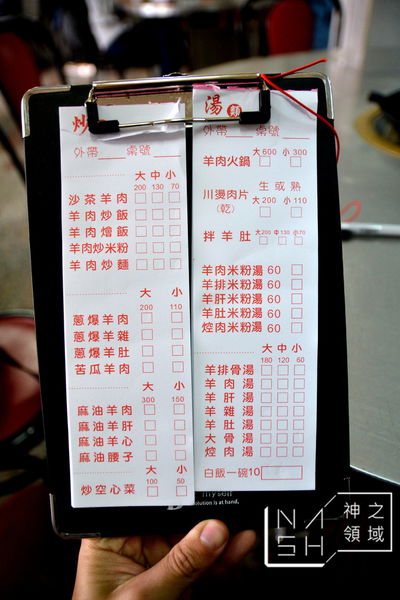 炒
外帶 桌號
大 中 小
200 130 70
沙茶羊肉
羊肉炒飯
羊肉燴飯
羊肉炒米粉
羊肉炒麵
大 小
200 110
蔥爆羊肉
蔥爆羊雜
蔥爆羊肚
苦瓜羊肉
大 小
300 150
麻油羊肉
麻油羊肝
麻油羊心
麻油腰子
大 小
炒空心菜 100 50
湯類
外帶 桌號
羊肉火鍋 大600 小300
川燙肉片 生或熟
(乾) 大200 小110
拌羊肚 大200 中130 小70
羊肉米粉湯 60
羊排米粉湯 60
羊肝米粉湯 60
羊肚米粉湯 60
焢肉米粉湯 60
大 中 小
180 120 60
羊排骨湯
羊肉湯
羊肝湯
羊雜湯
羊肚湯
大骨湯
焢肉湯
白飯一碗10
olution is at hand.
NASH
神之領域